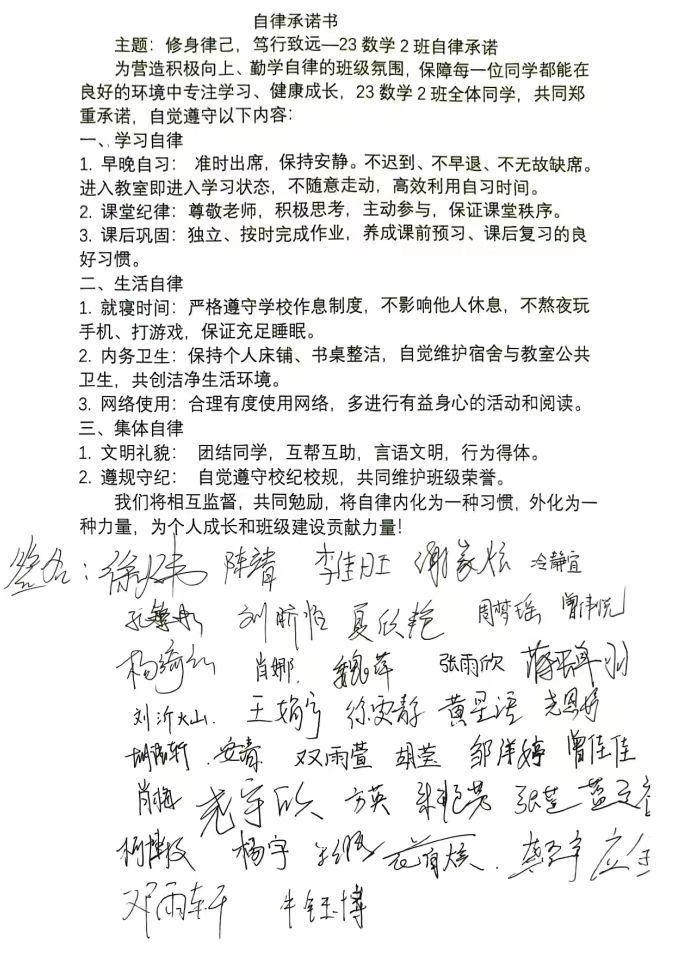 自律承诺书
主题：修身律己，笃行致远—23 数学 2 班自律承诺
为营造积极向上、勤学自律的班级氛围，保障每一位同学都能在
良好的环境中专注学习、健康成长，23 数学 2 班全体同学，共同郑
重承诺，自觉遵守以下内容：
一、学习自律
1. 早晚自习： 准时出席，保持安静。不迟到、不早退、不无故缺席。
进入教室即进入学习状态，不随意走动，高效利用自习时间。
2. 课堂纪律：尊敬老师，积极思考，主动参与，保证课堂秩序。
3. 课后巩固：独立、按时完成作业，养成课前预习、课后复习的良
好习惯。
二、生活自律
1. 就寝时间：严格遵守学校作息制度，不影响他人休息，不熬夜玩
手机、打游戏，保证充足睡眠。
2. 内务卫生：保持个人床铺、书桌整洁，自觉维护宿舍与教室公共
卫生，共创洁净生活环境。
3. 网络使用：合理有度使用网络，多进行有益身心的活动和阅读。
三、集体自律
1. 文明礼貌： 团结同学，互帮互助，言语文明，行为得体。
2. 遵规守纪： 自觉遵守校纪校规，共同维护班级荣誉。
我们将相互监督，共同勉励，将自律内化为一种习惯，外化为一
种力量，为个人成长和班级建设贡献力量！
签名： 陈靖 李佳旺 冷静宜
夏欣艳 周梦瑶 曾伟悦
肖娜 魏萍 张雨欣
刘沂火山
安春 双雨萱 胡莹 邹洋婷 曾佳佳
肖梅 尧宇欣 方英
杨宇
邓雨轩 牛钰博